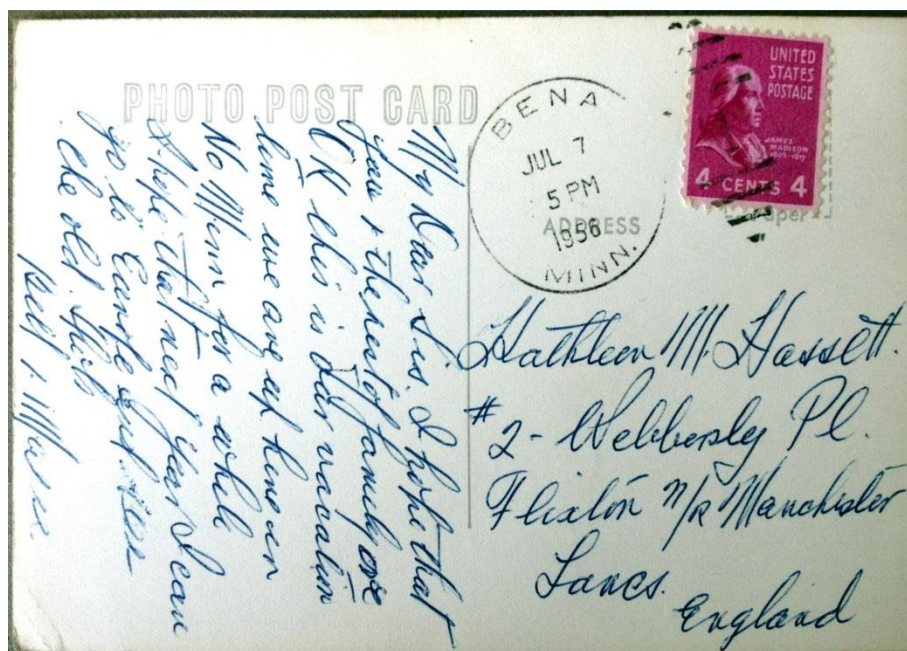 PHOTO POST CARD
BENA
JUL 7
5 PM
1956
MINN.
UNITED
STATES
POSTAGE
JAMES
MADISON
1809-1817
4 CENTS 4
ADDRESS
My Dear Sis. I hope that
you & the rest of family are
OK this is our vacation
time we are up here in
No Minn for a while
I hope that next year I can
go to and see
the old
Bill &
Kathleen M. Hassett.
#2 - Pl.
Flixton n/r Manchester
Lancs.
England